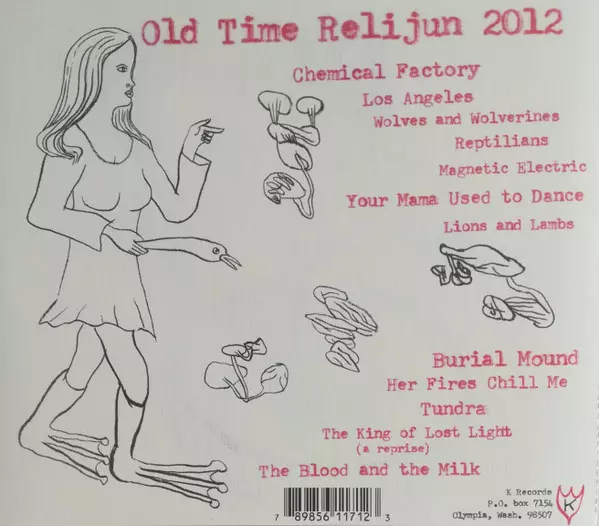 Old Time Relijun 2012
Chemical Factory
Los Angeles
Wolves and Wolverines
Reptilians
Magnetic Electric
Your Mama Used to Dance
Lions and Lambs
Burial Mound
Her Fires Chill Me
Tundra
The King of Lost Light
(a reprise)
The Blood and the Milk
K Records
P.O. box 7154
Olympia, Wash. 98507
K
7 89856 11712 3